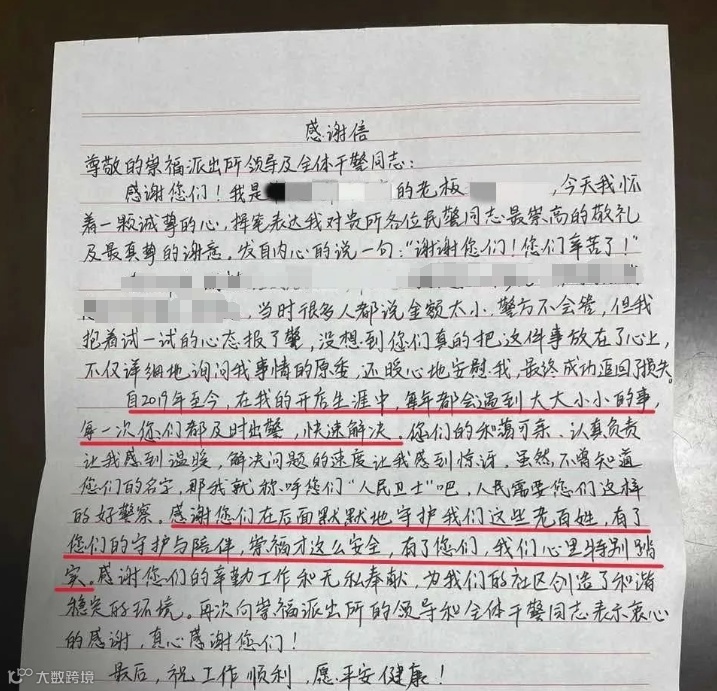 感谢信
尊敬的崇福派出所领导及全体干警同志：
感谢您们！我是的老板，今天我怀
着一颗诚尊的心，挥笔表达我对贵所各位民警同志最崇高的敬礼
及最真尊的谢意。发自内心的说一句：“谢谢您们！您们辛苦了！”
，当时很多人都说金额太小，警方不会管，但我
抱着试一试的心态报了警，没想到您们真的把这件事放在了心上，
不仅详细地询问我事情的原委，还暖心地安慰我，最终成功追回了损失。
自2019年至今，在我的开店生涯中，每年都会遇到大大小小的事，
每一次您们都及时出警，快速解决。您们的和蔼可亲、认真负责
让我感到温暖，解决问题的速度让我感到惊讶。虽然不曾知道
您们的名字，那我就称呼您们“人民卫士”吧，人民需要您们这样
的好警察。感谢您们在后面默默地守护我们这些老百姓，有了
您们的守护与陪伴，崇福才这么安全，有了您们，我们心里特别踏
实。感谢您们的辛勤工作和无私奉献，为我们的社区创造了和谐
稳定的环境。再次向崇福派出所的领导和全体干警同志表示衷心
的感谢，真心感谢您们！
最后，祝工作顺利，愿平安健康！
大数跨境